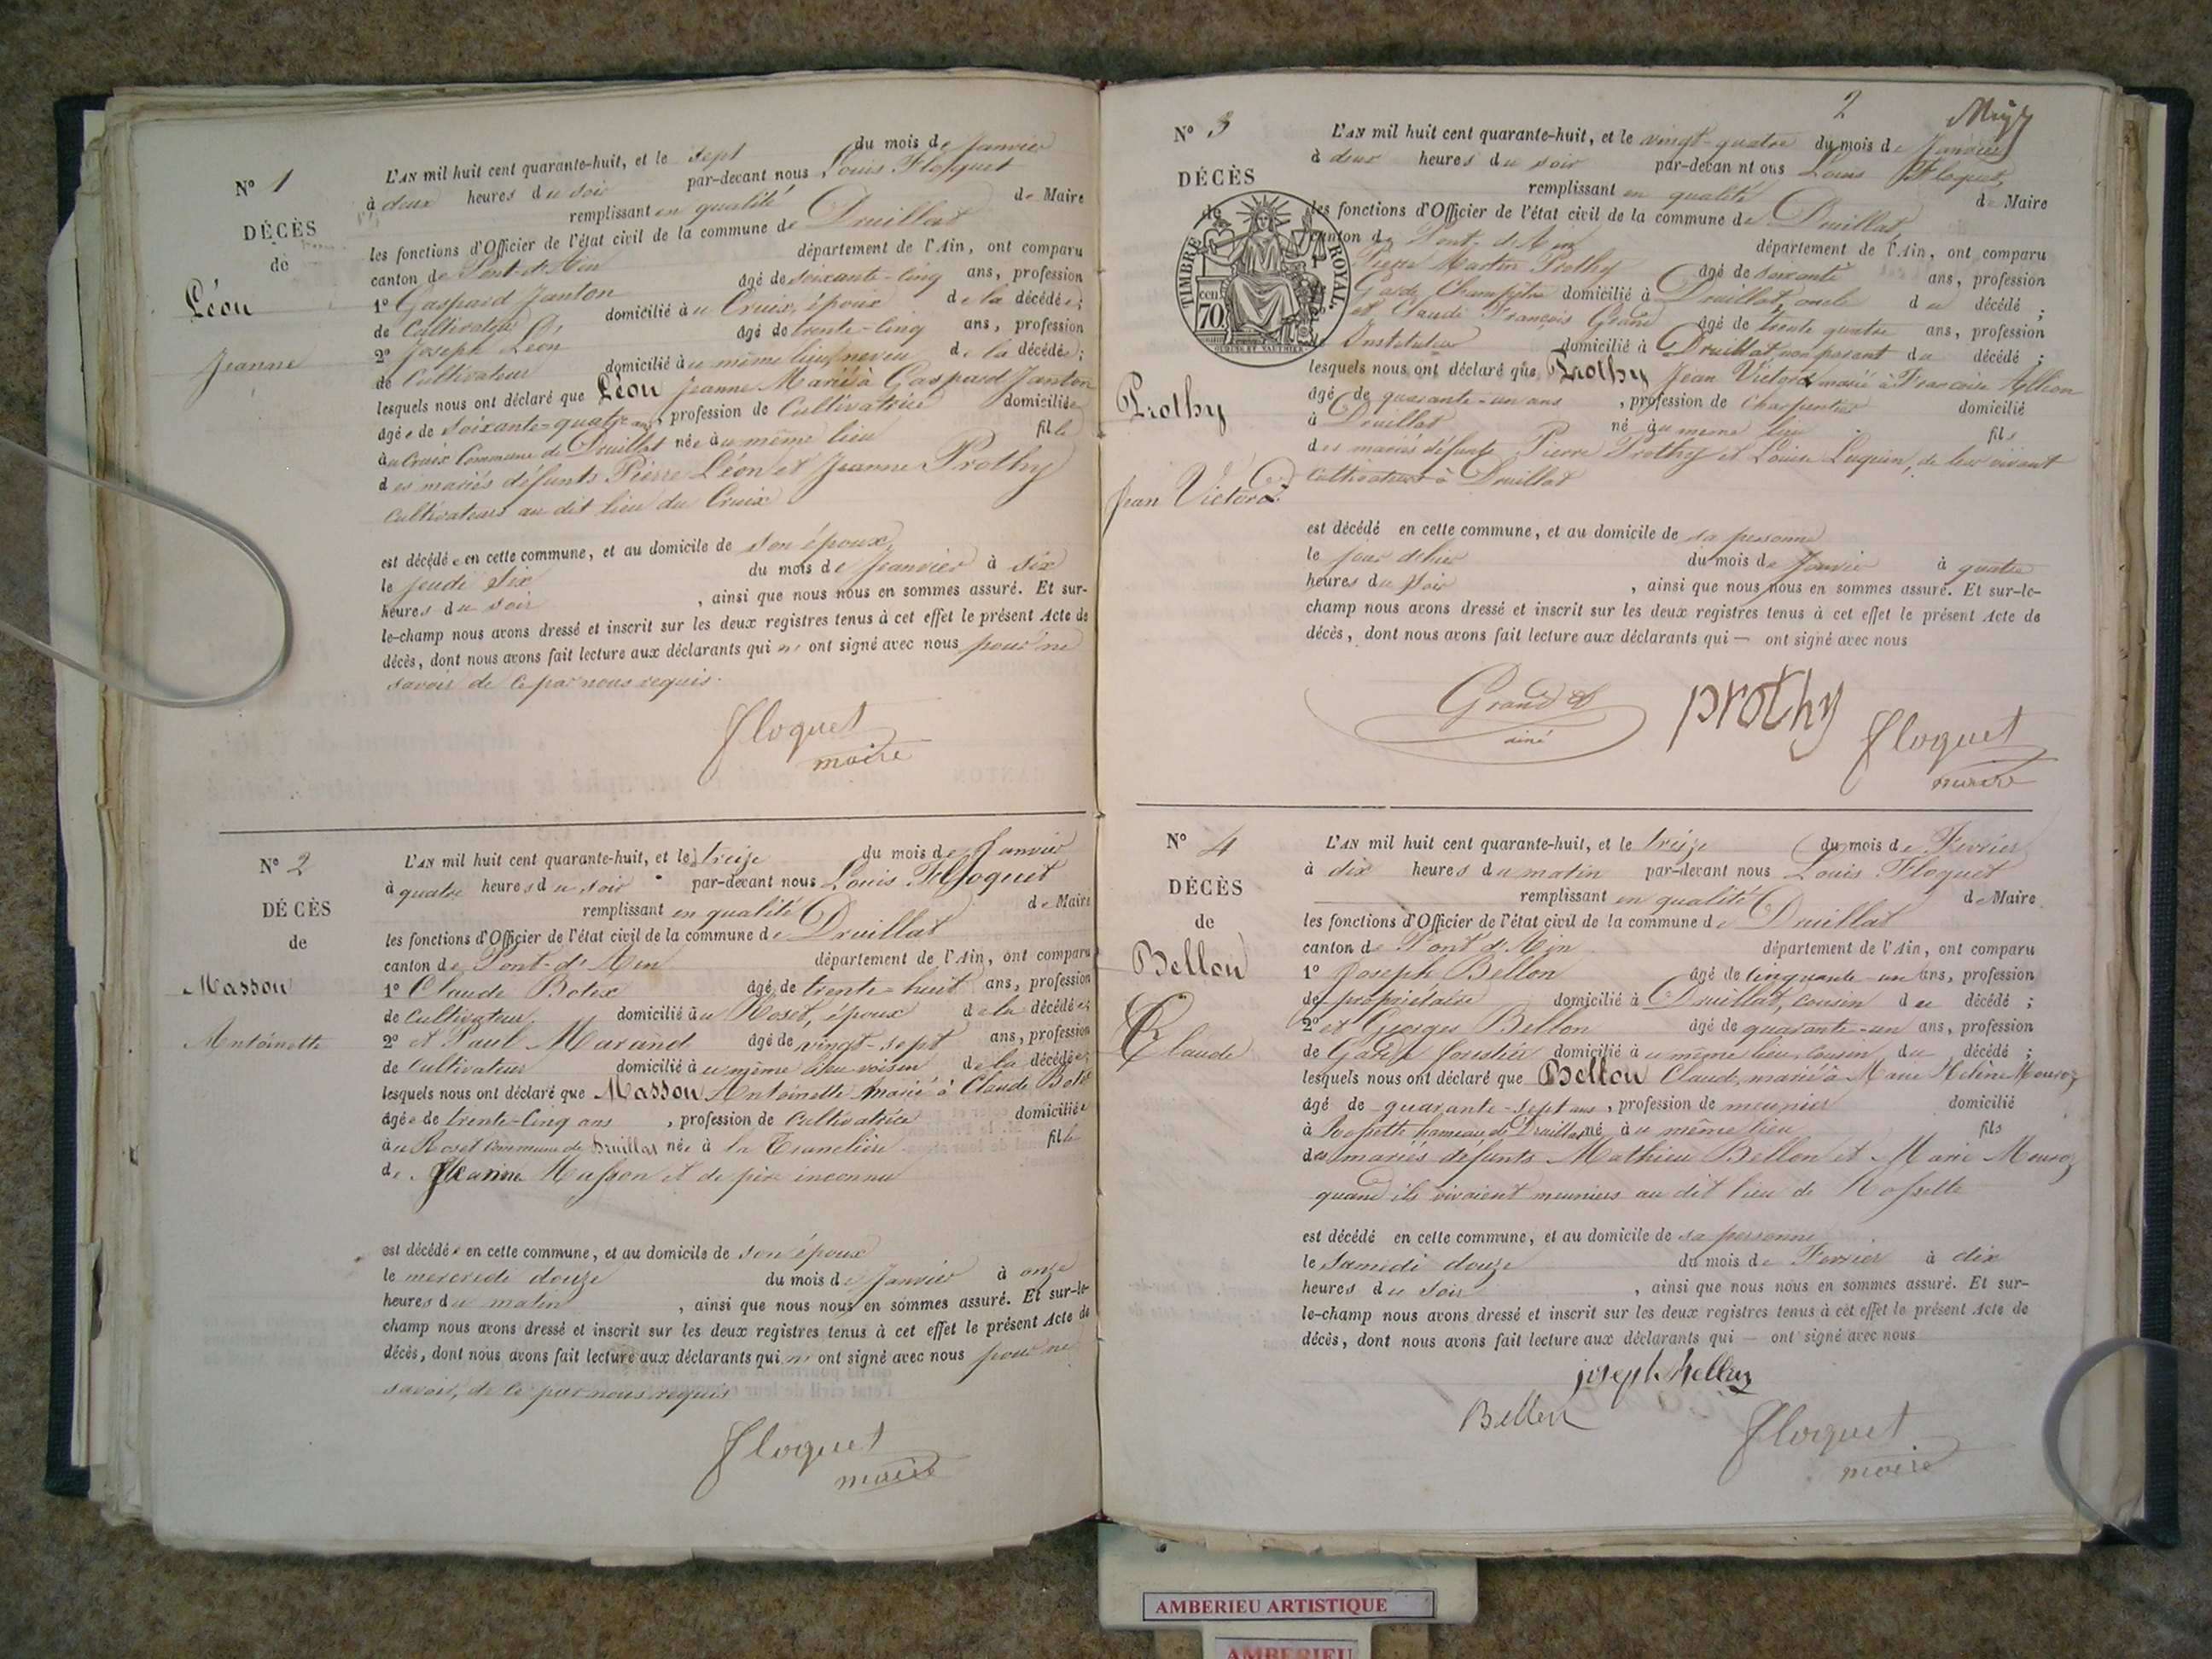 N° 1
DÉCÈS
de
Léon
Jeanne
L'AN mil huit cent quarante-huit, et le sept du mois de Janvier
à deux heures du soir par-devant nous Louis Floquet
remplissant en qualité de Maire
les fonctions d'Officier de l'état civil de la commune de Druillat
canton de Pont-d'Ain département de l'Ain, ont comparu
1° Gaspard Janton âgé de soixante-cinq ans, profession
de Cultivateur domicilié au Cruix, époux de la décédée;
2° Joseph Léon âgé de trente-cinq ans, profession
de Cultivateur domicilié au même lieu, neveu de la décédée;
lesquels nous ont déclaré que Léon Jeanne Mariée à Gaspard Janton
âgée de soixante-quatre ans, profession de Cultivatrice domiciliée
au Cruix Commune de Druillat née au même lieu fille
des mariés défunts Pierre Léon et Jeanne Prothy
Cultivateurs au dit lieu du Cruix
est décédée en cette commune, et au domicile de son époux,
le jeudi six du mois de Jeanvier à six
heures du soir, ainsi que nous nous en sommes assuré. Et sur-
le-champ nous avons dressé et inscrit sur les deux registres tenus à cet effet le présent Acte de
décès, dont nous avons fait lecture aux déclarants qui n' ont signé avec nous pour ne
savoir de ce par nous requis.
Floquet
maire
N° 2
DÉCÈS
de
Masson
Antoinette
L'AN mil huit cent quarante-huit, et le treize du mois de Janvier
à quatre heures du soir par-devant nous Louis Floquet
remplissant en qualité de Maire
les fonctions d'Officier de l'état civil de la commune de Druillat
canton de Pont-d'Ain département de l'Ain, ont comparu
1° Claude Botex âgé de trente-huit ans, profession
de Cultivateur domicilié au Roset, époux de la décédée;
2° et Paul Marand âgé de vingt-sept ans, profession
de Cultivateur domicilié au même lieu voisin de la décédée;
lesquels nous ont déclaré que Masson Antoinette marié à Claude
âgée de trente-cinq ans, profession de Cultivatrice domiciliée
au Roset commune de Druillat née à la Tranclière fille
de Jeanne Masson et de père inconnu
est décédée en cette commune, et au domicile de son époux
le mercredi douze du mois de Janvier à onze
heures du matin, ainsi que nous nous en sommes assuré. Et sur-le-
champ nous avons dressé et inscrit sur les deux registres tenus à cet effet le présent Acte de
décès, dont nous avons fait lecture aux déclarants qui n' ont signé avec nous pour ne
savoir, de ce par nous requis
Floquet
maire
2
N° 3
DÉCÈS
de
TIMBRE ROYAL
cen 70
Prothy
Jean Victor
L'AN mil huit cent quarante-huit, et le vingt-quatre du mois de Janvier
à deux heures du soir par-devan nt ous Louis Floquet,
remplissant en qualité de Maire
les fonctions d'Officier de l'état civil de la commune de Druillat,
canton de Pont-d'Ain département de l'Ain, ont comparu
Pierre Martin Prothy âgé de soixante ans, profession
Garde Champêtre domicilié à Druillat, oncle du décédé;
et Claude François Grand âgé de trente quatre ans, profession
Instituteur domicilié à Druillat, non parent du décédé;
lesquels nous ont déclaré que Prothy Jean Victor marié à Françoise
âgé de quarante-un ans, profession de charpentier domicilié
à Druillat né au même lieu fils
des mariés défunts Pierre Prothy et Louise, de leur vivant
cultivateurs à Druillat
est décédé en cette commune, et au domicile de sa personne
le jour d'hier du mois de Janvier à quatre
heures du soir, ainsi que nous nous en sommes assuré. Et sur-le-
champ nous avons dressé et inscrit sur les deux registres tenus à cet effet le présent Acte de
décès, dont nous avons fait lecture aux déclarants qui — ont signé avec nous
Grand
ainé
prothy
Floquet
maire
N° 4
DÉCÈS
de
Bellon
Claude
L'AN mil huit cent quarante-huit, et le treize du mois de Fevrier
à dix heures du matin par-devant nous Louis Floquet
remplissant en qualité de Maire
les fonctions d'Officier de l'état civil de la commune de Druillat
canton de Pont d'Ain département de l'Ain, ont comparu
1° Joseph Bellon âgé de cinquante-un ans, profession
de propriétaire domicilié à Druillat, cousin du décédé;
2° et Georges Bellon âgé de quarante-un ans, profession
de Garde forestier domicilié au même lieu, cousin du décédé;
lesquels nous ont déclaré que Bellon Claude, marié à Marie Hélène
âgé de quarante-sept ans, profession de meunier domicilié
à Rossette hameau de Druillat né au même lieu fils
des mariés défunts Mathieu Bellon et Marie
quand ils vivaient meuniers au dit lieu de Rossette
est décédé en cette commune, et au domicile de sa personne
le Samedi douze du mois de Fevrier à dix
heures du soir, ainsi que nous nous en sommes assuré. Et sur-
le-champ nous avons dressé et inscrit sur les deux registres tenus à cet effet le présent Acte de
décès, dont nous avons fait lecture aux déclarants qui — ont signé avec nous
joseph bellon
Bellon
Floquet
maire
AMBERIEU ARTISTIQUE
AMBERIEU